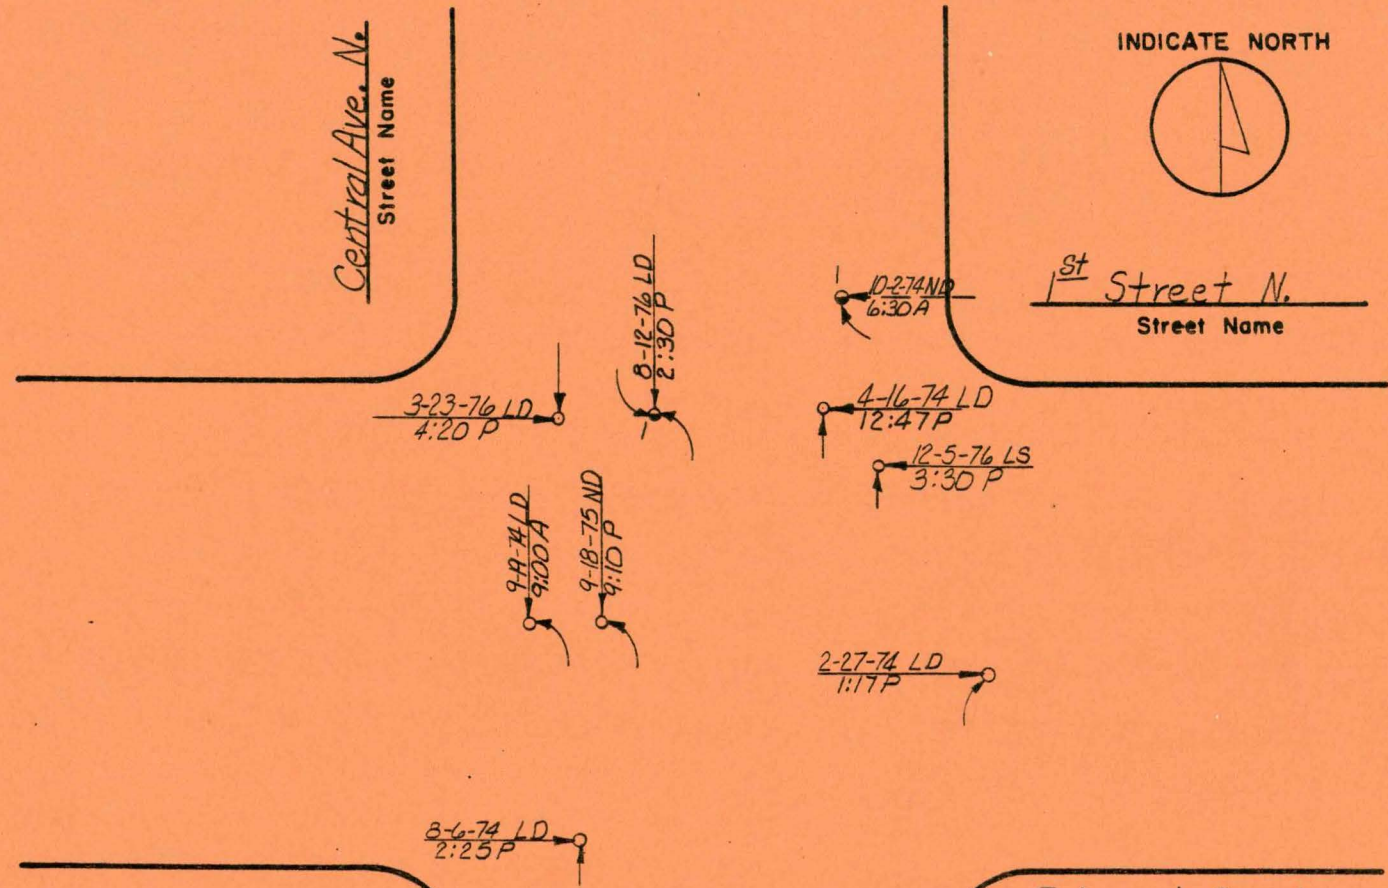 Central Ave. N.
Street Name
INDICATE NORTH
1st Street N.
Street Name
8-12-76 LD
2:30 P
1
1
10-2-74 ND
6:30 A
3-23-76 LD
4:20 P
4-16-74 LD
12:47 P
12-5-76 LS
3:30 P
9:00 A
9-18-75 ND
9:10 P
2-27-74 LD
1:17 P
8-6-74 LD
2:25 P